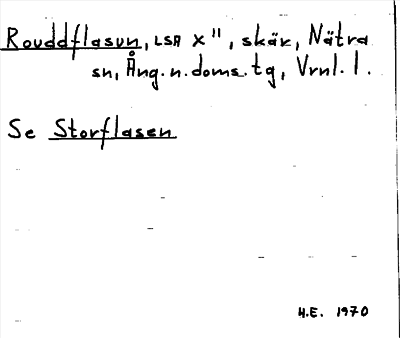 Rouddflasun, LSA X", skär, Nätra
sn, Ång. n. doms. tg, Vrnl. l.
Se Storflasen
H.E. 1970